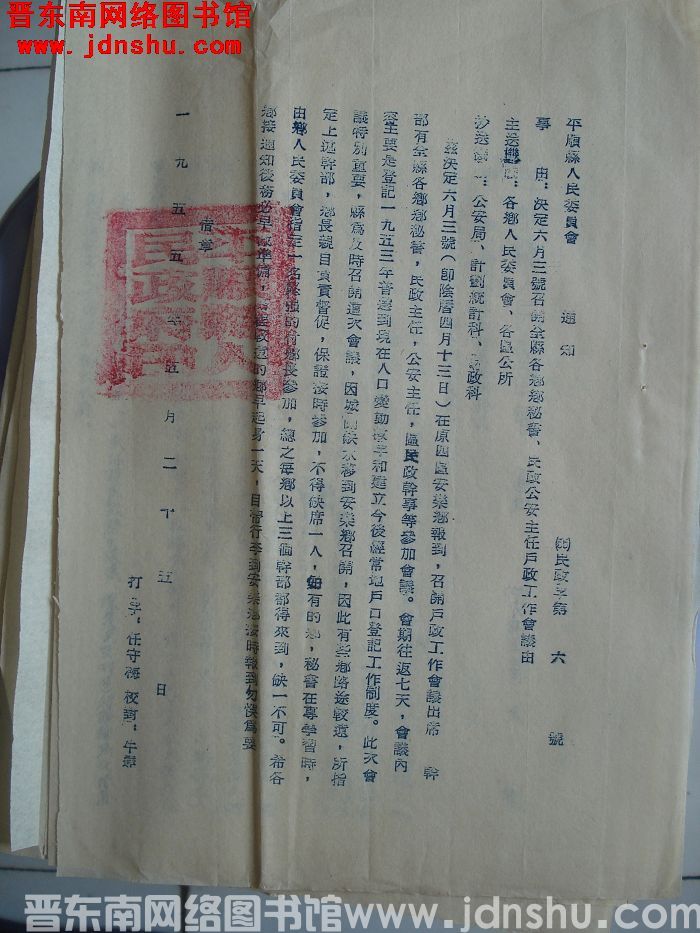 晋东南网络图书馆
www.jdnshu.com
平順縣人民委員會 通知
民政字第 六 號
事 由：決定六月三號召開全縣各鄉鄉秘書、民政公安主任戶政工作會議由
主送機關：各鄉人民委員會、各區公所
抄送 ：公安局、計劃統計科、 政科
茲決定六月三號（卽陰曆四月十三日）在原四區安樂鄉報到，召開戶政工作會議出席 幹
部有全縣各鄉鄉秘書，民政主任，公安主任，區民政幹事等參加會議。會期往返七天，會議內
容主要是登記一九五三年普選到現在人口變動 和建立今後經常地戶口登記工作制度。此次會
議特別重要，縣爲及時召開這次會議，因城關缺水移到安樂鄉召開，因此有些鄉路途較遠，所指
定上述幹部，鄉長親自負責督促，保證按時參加，不得缺席一人，如有的鄉，秘書在專學習時，
由鄉人民委員會指定一名較強的付鄉長參加，總之每鄉以上三個幹部都得來到，缺一不可。希各
鄉接通知後務必早做準備， 較遠的鄉早起身一天，自帶行李到安樂鄉按時報到勿悞爲要
借章
一九五五年五月二十五日
打字：任守梅 校對：牛
晋东南网络图书馆 www.jdnshu.com